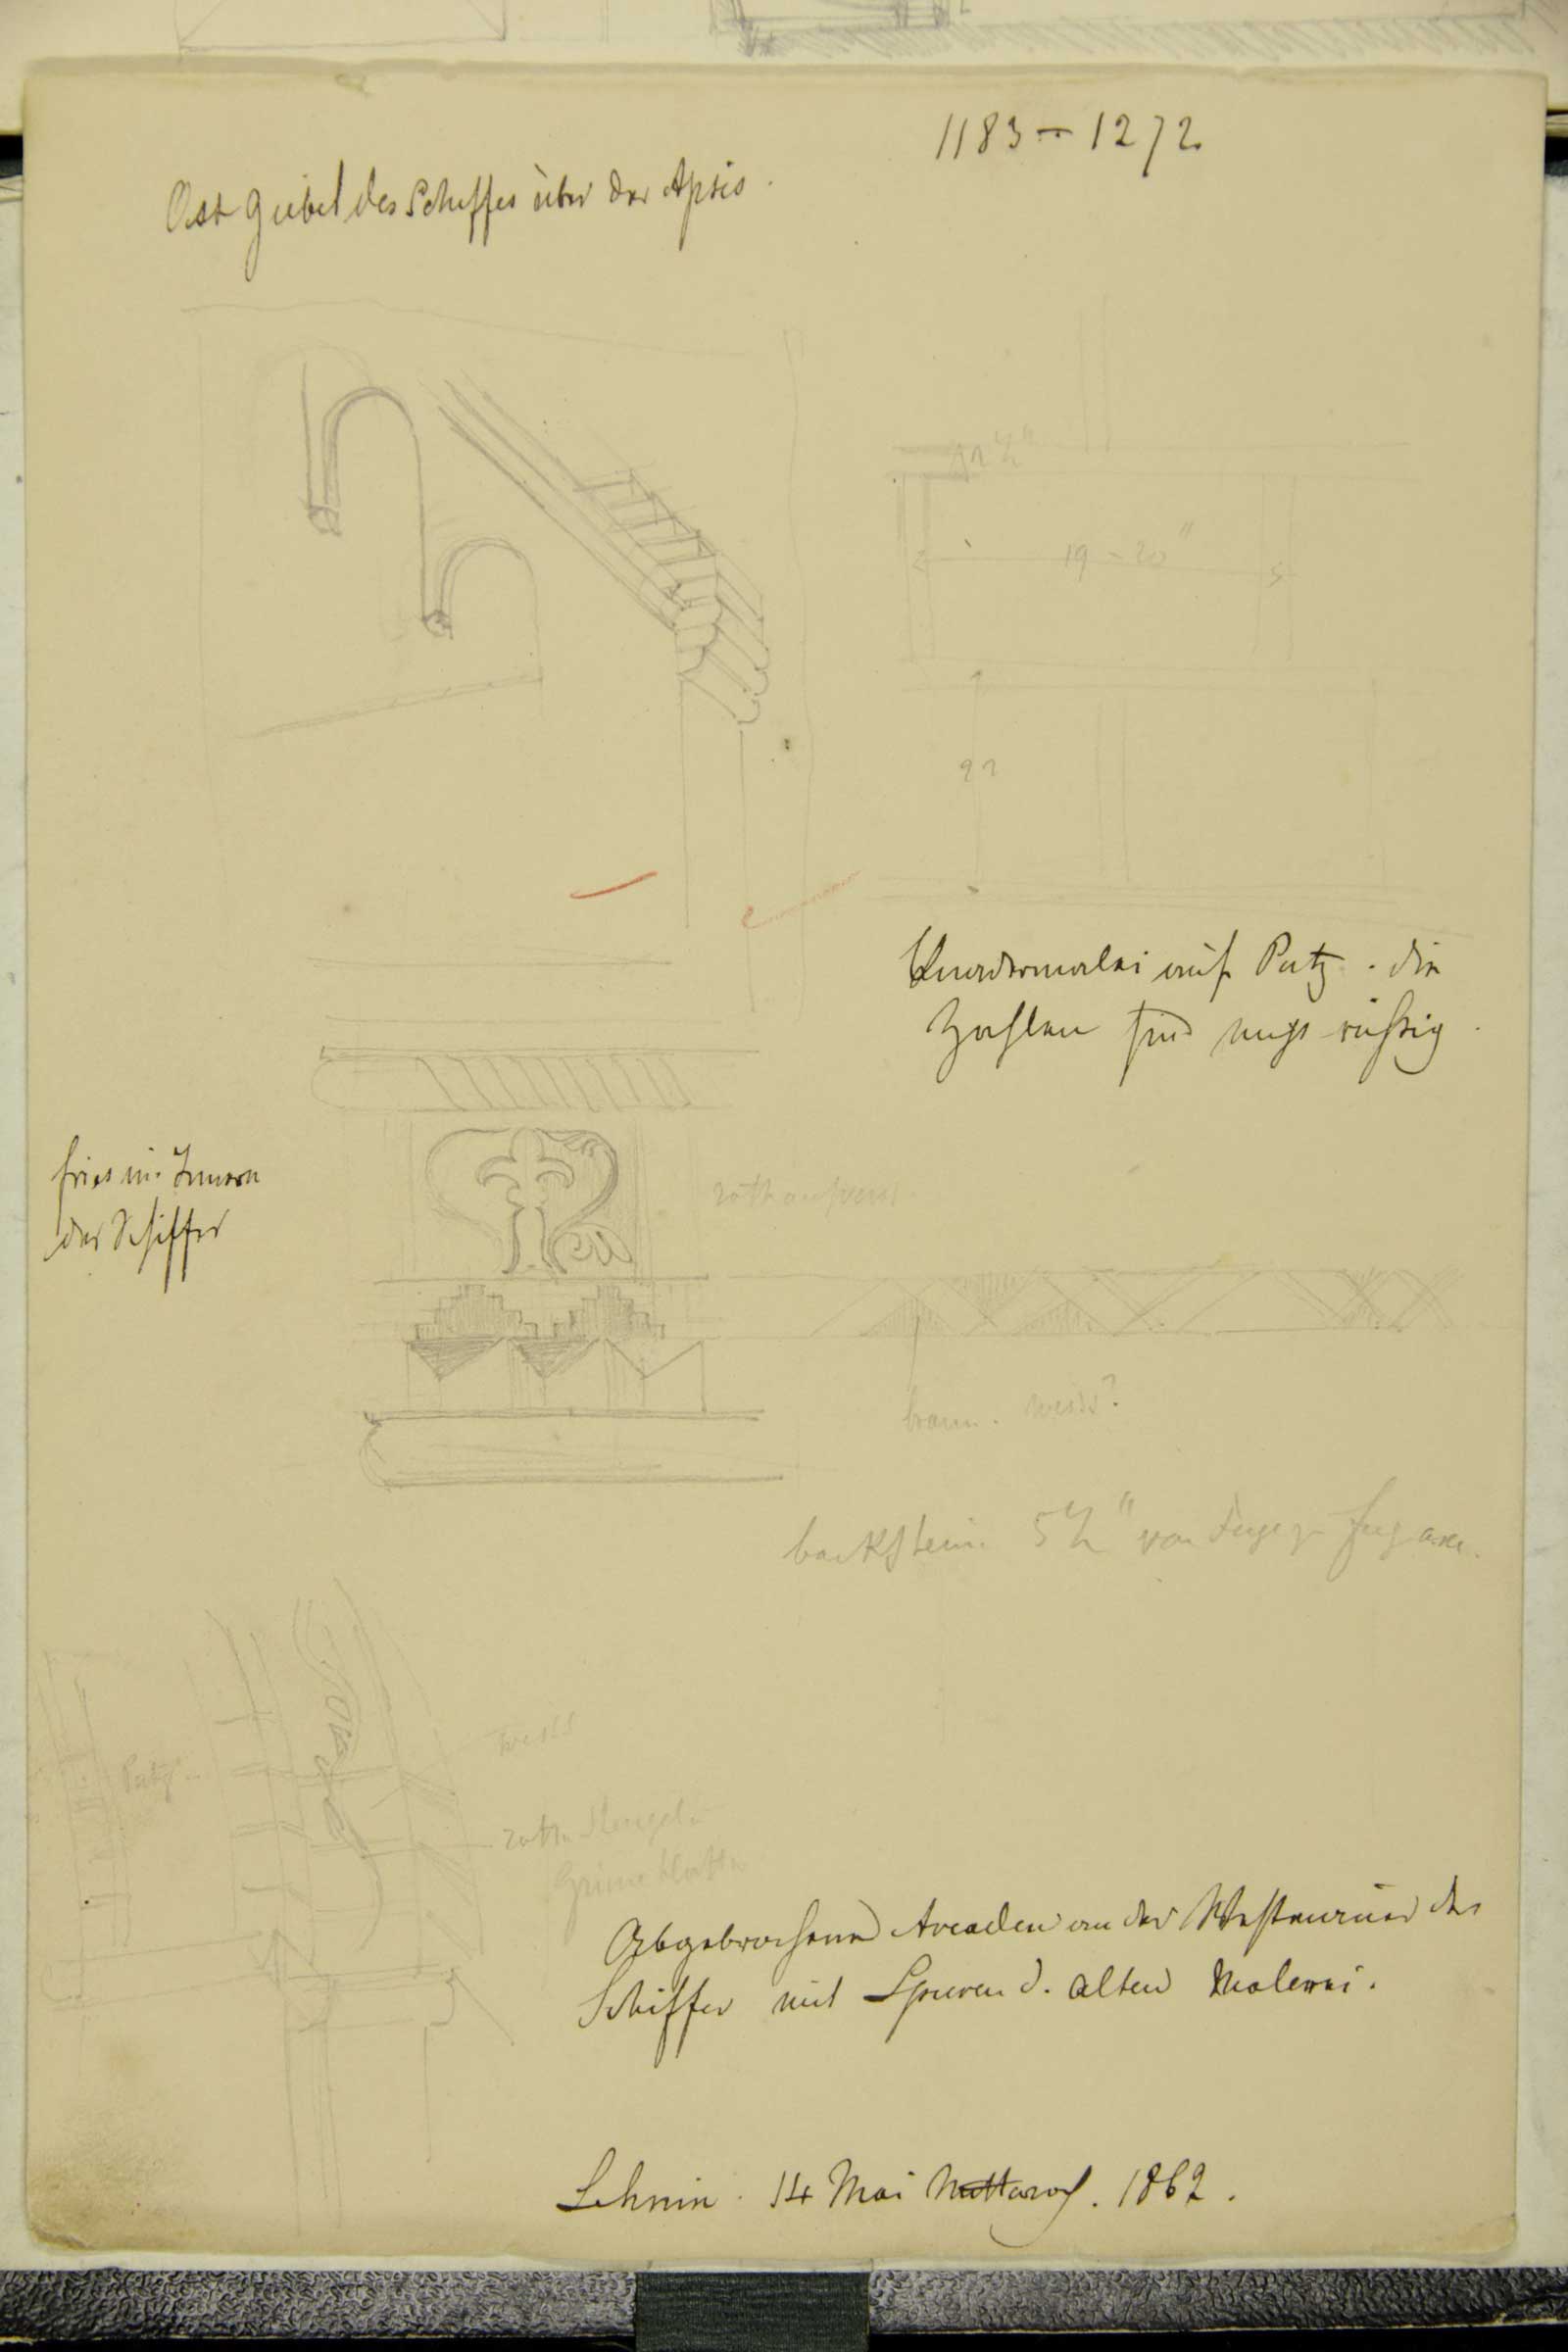 1183 – 1272
Ost giebel des Schiffes über der Apsis.
11 ½"
19 – 20"
Quadermalei auf Putz. die
Zahlen sind nicht richtig.
fries im Innern
der Schiffer
roth auf weiss.
braun. weiss?
backstein. 5 ½" von Fuge z. Fuge
weiss
Putz.
rothe Stengel.
Grüne blätter
Abgebrochene Arcaden an der Westmauer des
Schiffes mit Spuren d. alten Malerei.
Lehnin. 14 Mai Mittwoch. 1862.